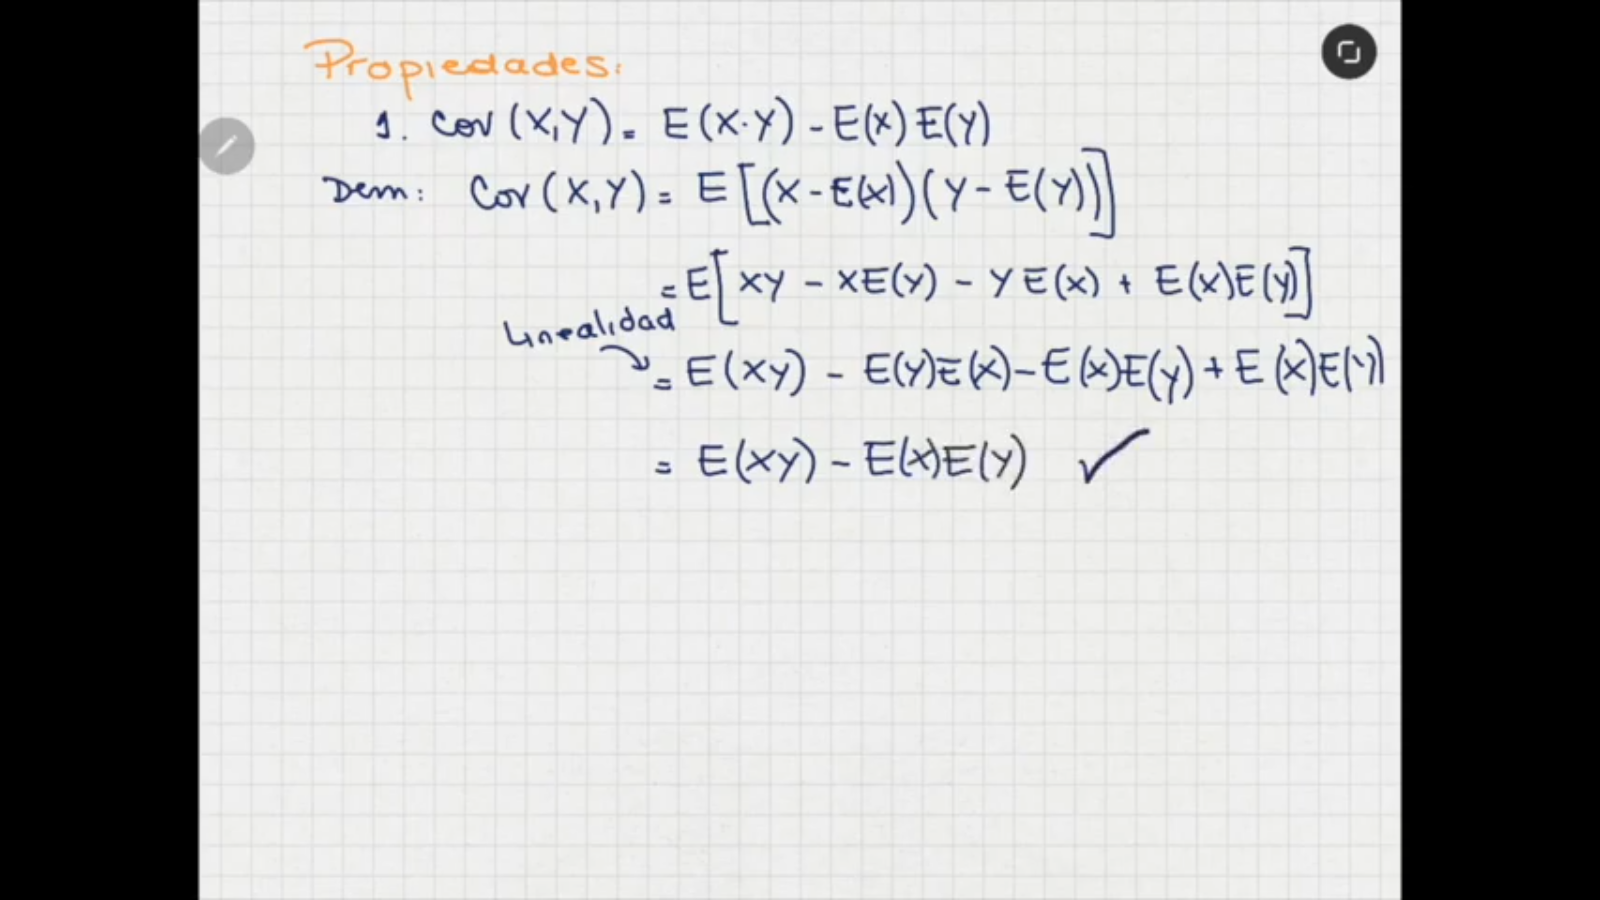 Propiedades:
1. Cov (X,Y) = E(X·Y) - E(X) E(Y)
Dem: Cov (X,Y) = E[(X - E(X))(Y - E(Y))]
= E[XY - XE(Y) - YE(X) + E(X)E(Y)]
Linealidad
= E(XY) - E(Y)E(X) - E(X)E(Y) + E(X)E(Y)
= E(XY) - E(X)E(Y) ✓